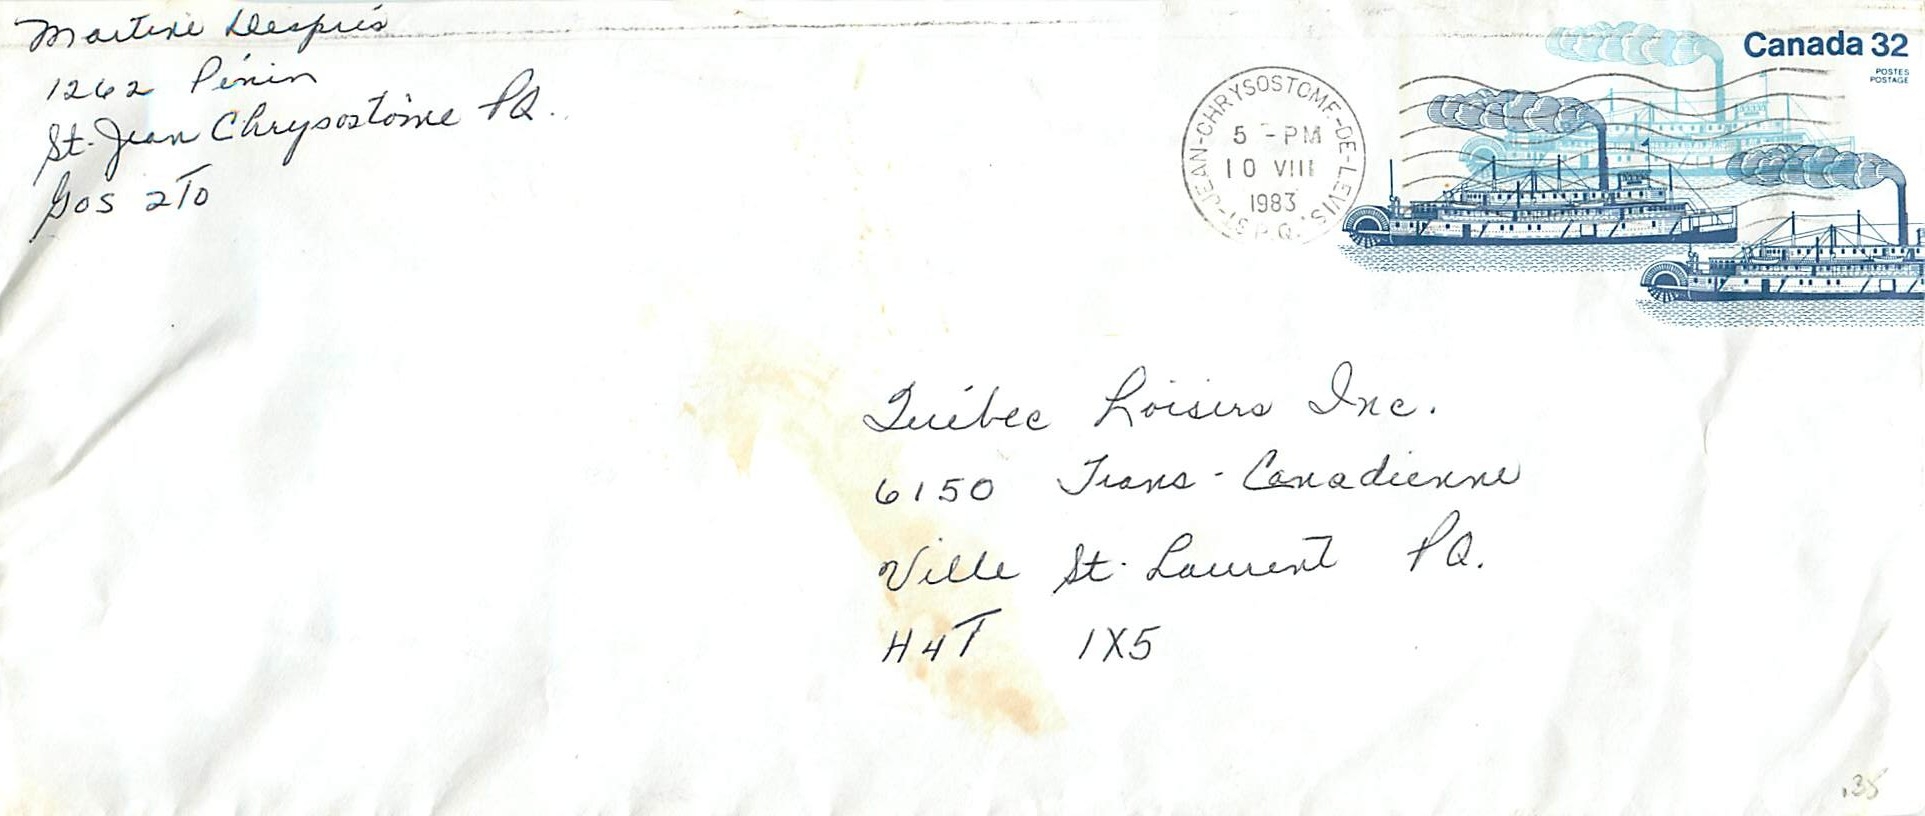 Martine Després
1262 Pénin
St. Jean Chrysostôme PQ.
G0S 2T0
Canada 32
POSTES
POSTAGE
ST-JEAN-CHRYSOSTOME-DE-LEVIS, P.Q.
5 - PM
10 VIII
1983
Québec Loisirs Inc.
6150 Trans-Canadienne
Ville St. Laurent PQ.
H4T 1X5
.35